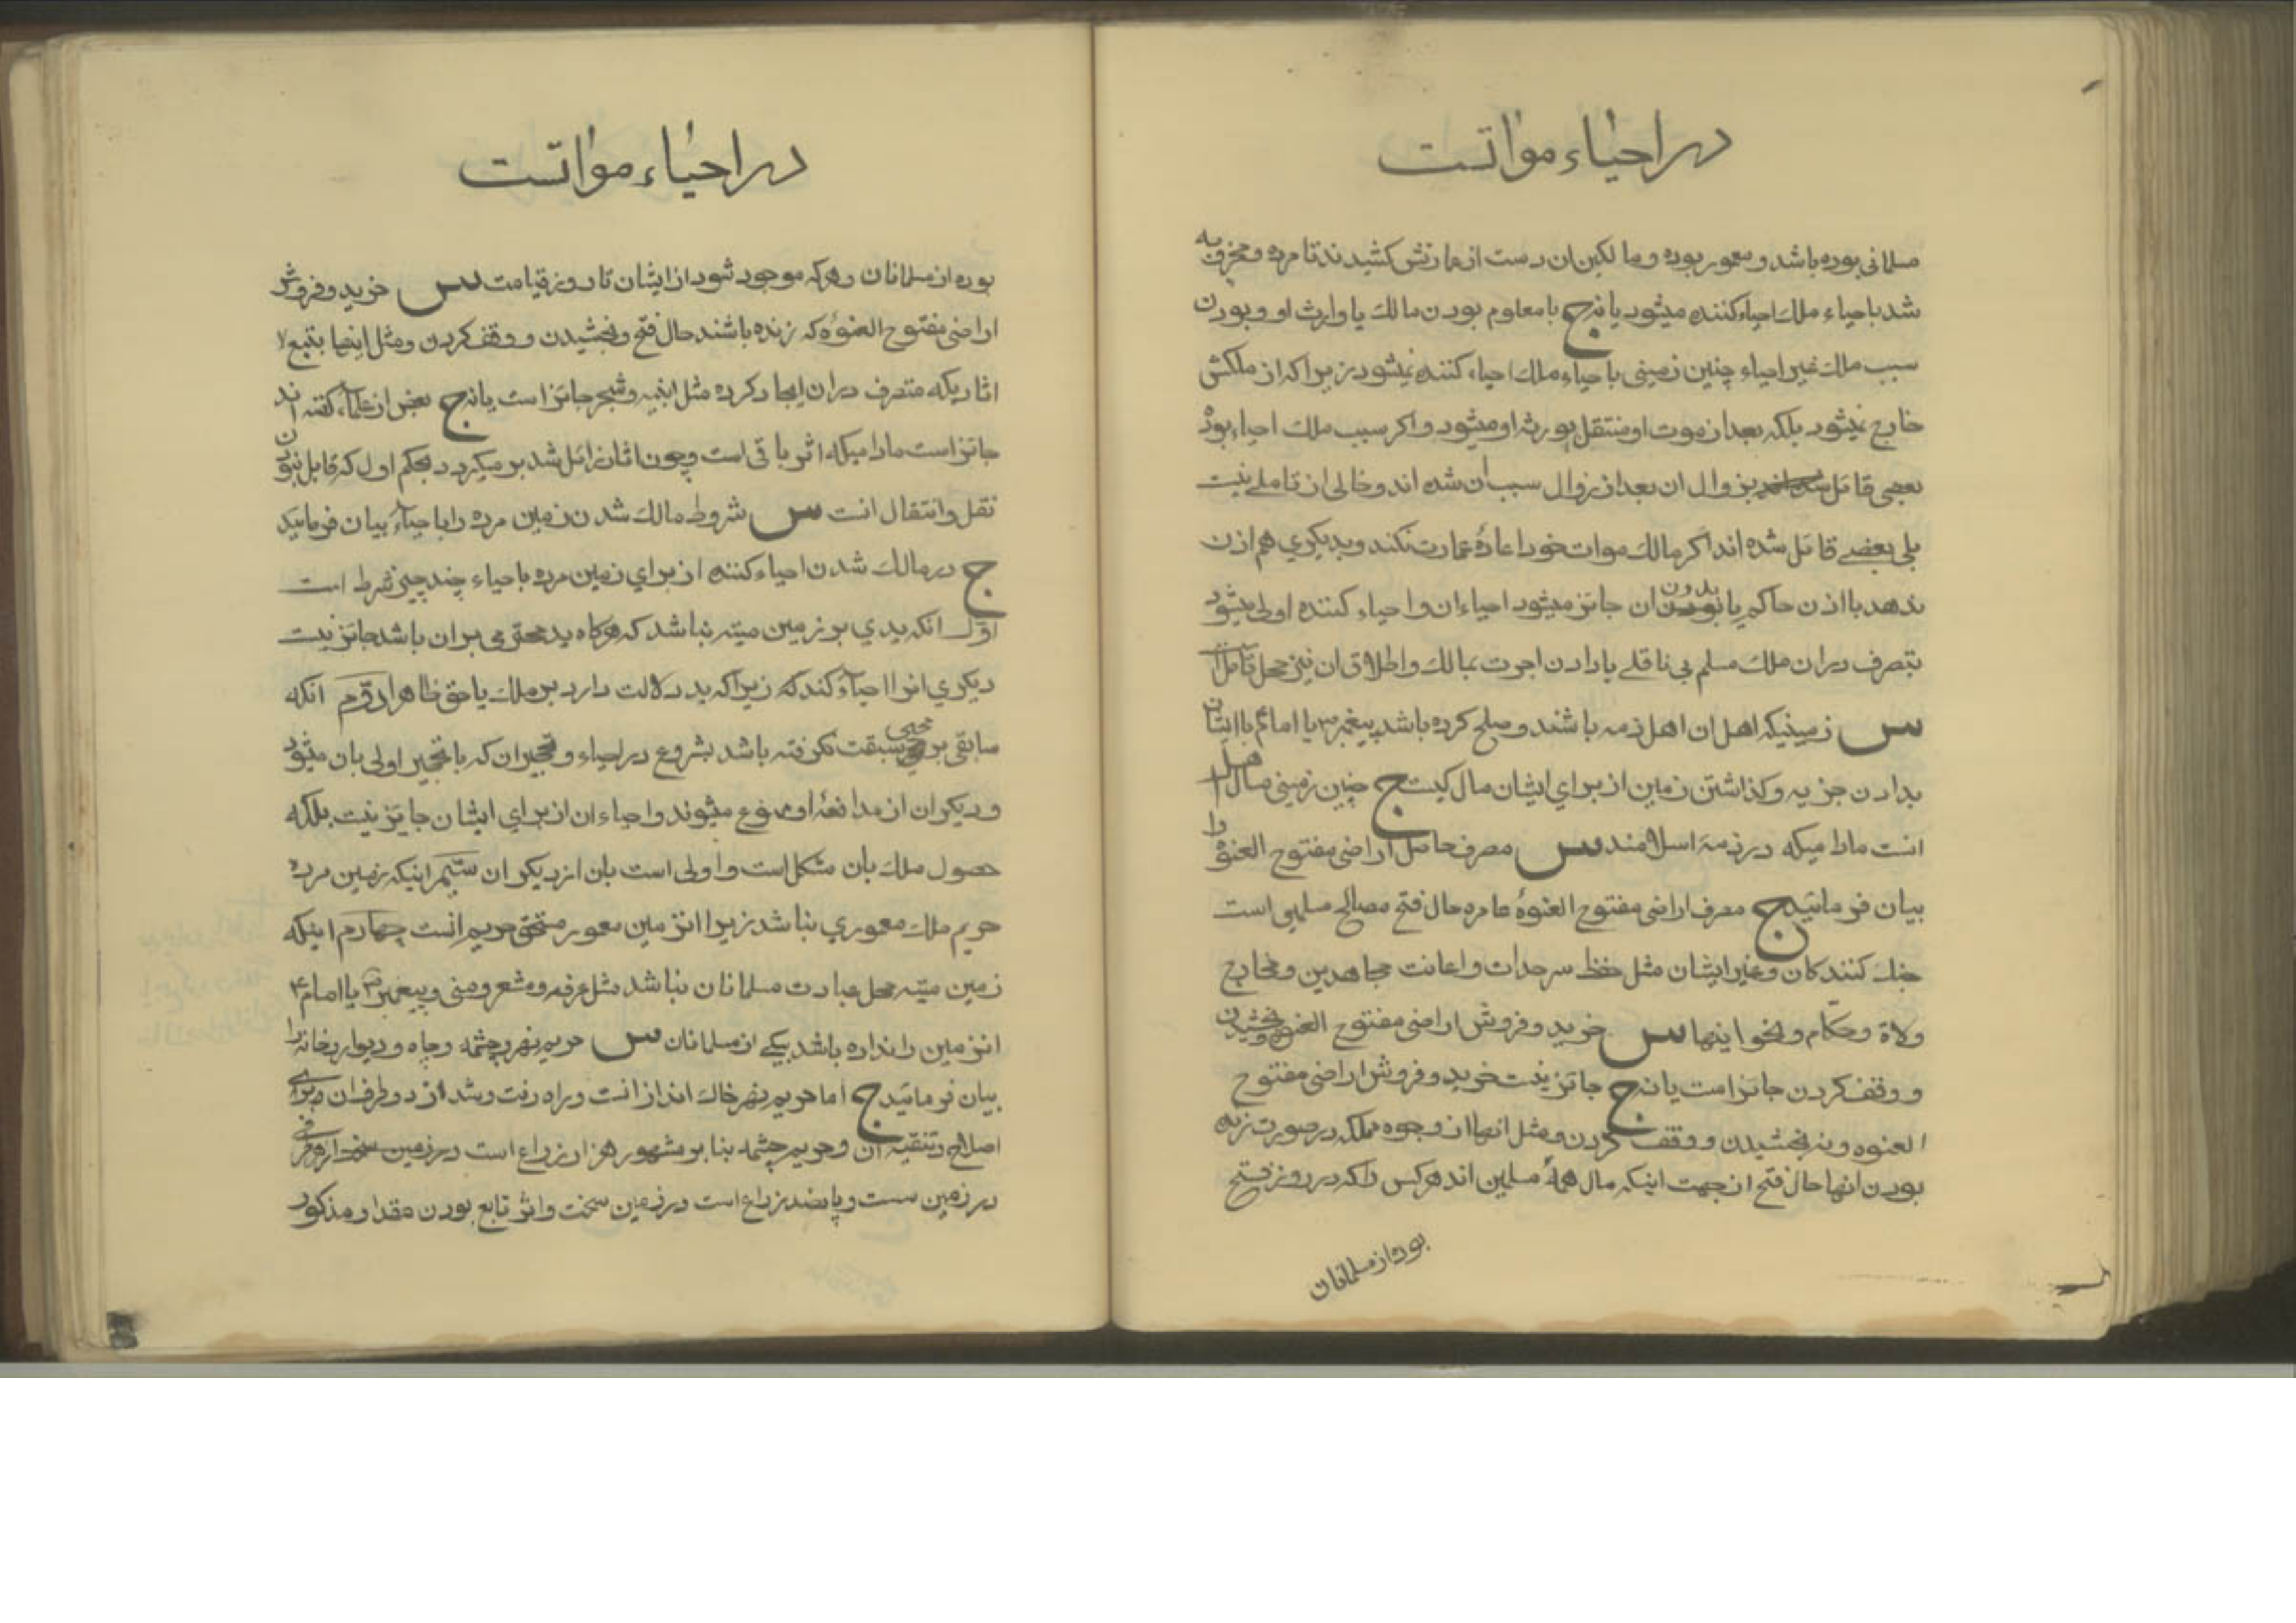 در احیاء مواتست
مسلمانی بوده باشد و معمور بوده و مالکین ان دست از عمارتش کشیدند تا مرده و مخروبه
شد باحیاء ملك احیاء کننده میشود یا نه ج با معلوم بودن مالك یا وارث او و بودن
سبب ملك غیر احیاء چنین زمینی باحیاء ملك احیاء کننده نمیشود زیرا که از ملکش
خارج نمیشود بلکه بعد از موت او منتقل بورثه او میشود و اکر سبب ملك احیاء بوده
بعضی قائل بزوال ان بعد از زوال سبب ان شده اند و خالی از تاملے نیست
بلی بعضے قائل شده اند اکر مالك موات خود اعادهٔ عمارت نکند و بدیکری هم اذن
ندهد با اذن حاکم یا بدون ان جائز میشود احیاء ان و احیاء کننده اولی میشود
بتصرف در ان ملك مسلم بی ناقلے یا دادن اجرت بمالك و اطلاق ان نیز محل تامل است
س زمینیکه اهل ان اهل ذمه باشند و صلح کرده باشد پیغمبر ص یا امام ع با ایشان
بدادن جزیه و کذاشتن زمین از برای ایشان مال کیست ج چنین زمینی مال اهل
انست مادامیکه در ذمهٔ اسلامند س مصرف حاصل اراضی مفتوح العنوه را
بیان فرمائید ج مصرف اراضی مفتوح العنوهٔ عامره حال فتح مصالح مسلمین است
جنك کنندکان و غیر ایشان مثل حفظ سرحدات و اعانت مجاهدین و مخارج
ولاة و حکّام و نحو اینها س خرید و فروش اراضی مفتوح العنوه و بخشیدن
و وقف کردن جائز است یا نه ج جائز نیست خرید و فروش اراضی مفتوح
العنوه و نه بخشیدن و وقف کردن و مثل انها از وجوه مملکه در صورت زنده
بودن انها حال فتح از جهت اینکه مال همهٔ مسلمین اند هر کس را که در روز فتح
بوده از مسلمانان
در احیاء مواتست
بوده از مسلمانان و هر که موجود شود از ایشان تا روز قیامت س خرید و فروش
اراضی مفتوح العنوهٔ که زنده باشند حال فتح و بخشیدن و وقف کردن و مثل اینها بتبع
اثاریکه متصرف در ان ایجاد کرده مثل ابنیه و شجر جائز است یا نه ج بعض از علماء کفته اند
جائز است مادامیکه اثر باقی است و چون اثار زائل شد بر میکردد بحکم اول که قابل نبودن
نقل و انتقال انست س شروط مالك شدن زمین مرده را باحیاء بیان فرمائید
ج در مالك شدن احیاء کننده از برای زمین مرده باحیاء چند چیز شرط است
اوّل انکه یدی بر زمین میته نباشد که هر کاه ید محترمی بر ان باشد جائز نیست
دیکری انرا احیاء کند که زیرا که ید دلالت دارد بر ملك یا حق ظاهرا دوّم انکه
سابقی بر محیی سبقت نکرفته باشد بشروع در احیاء و تحجیر ان که با تحجیر اولی بان میشود
و دیکران از مدافعهٔ او ممنوع میشوند و احیاء ان از برای ایشان جایز نیست بلکه
حصول ملك بان مشکل است و اولی است بان از دیکران سیّم اینکه زمین مرده
حریم ملك معموری نباشد زیرا انزمین معمور مستحق حریم انست چهارم اینکه
زمین میته محل عبادت مسلمانان نباشد مثل عرفه و مشعر و منی و پیغمبر ص یا امام ع
انزمین را نداده باشد بیکے از مسلمانان س حریم نهر و چشمه و چاه و دیوار خانه را
بیان فرمائید ج اما حریم نهر خاك انداز انست و راه رفت و شد از دو طرف ان برای
اصلاح و تنقیه ان و حریم چشمه بنابر مشهور هزار زراع است در زمین
در زمین سست و پانصد زراع است در زمین سخت و اثر تابع بودن مقدار مذکور